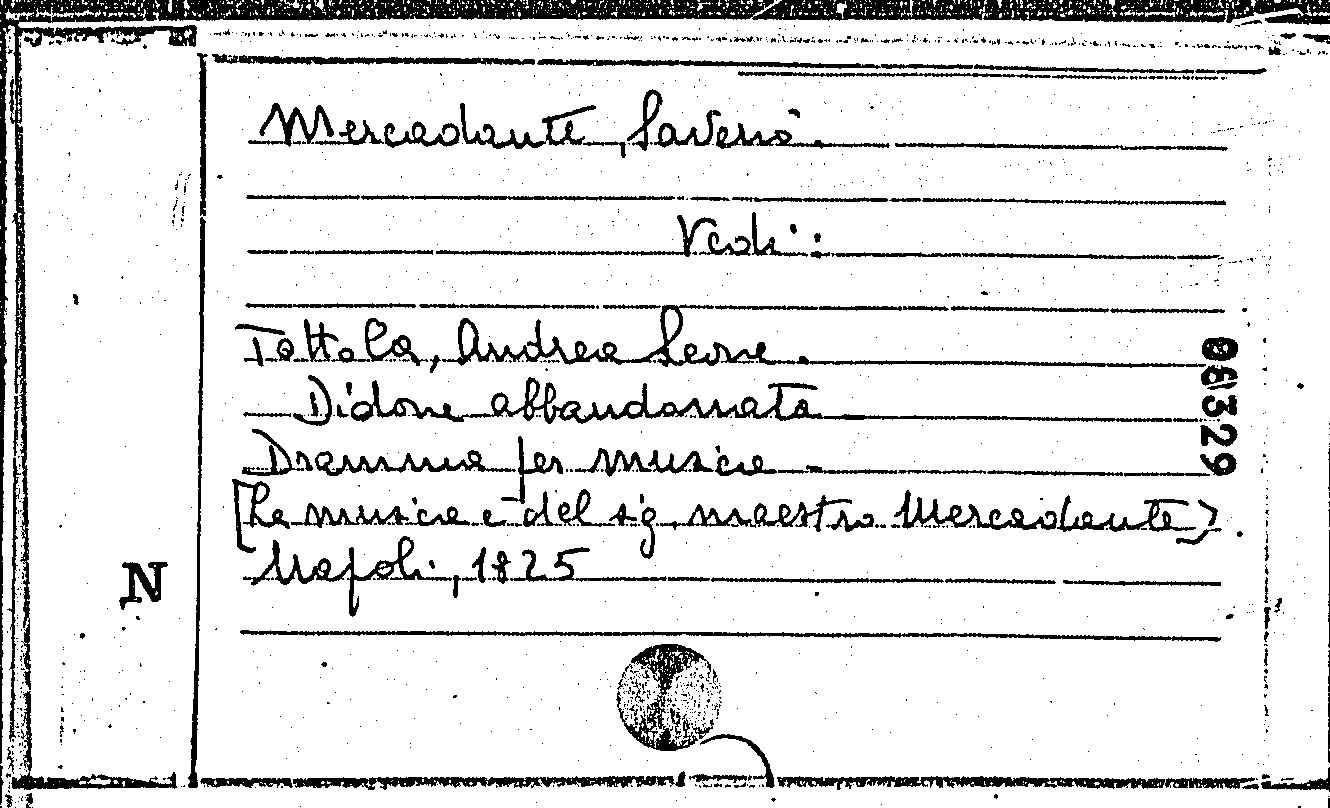 Mercadante, Saverio.
Vedi:
Tottola, Andrea Leone.
Didone abbandonata
Dramma per musica -
[La musica è del sig. maestro Mercadante]
Napoli, 1825
06329
N